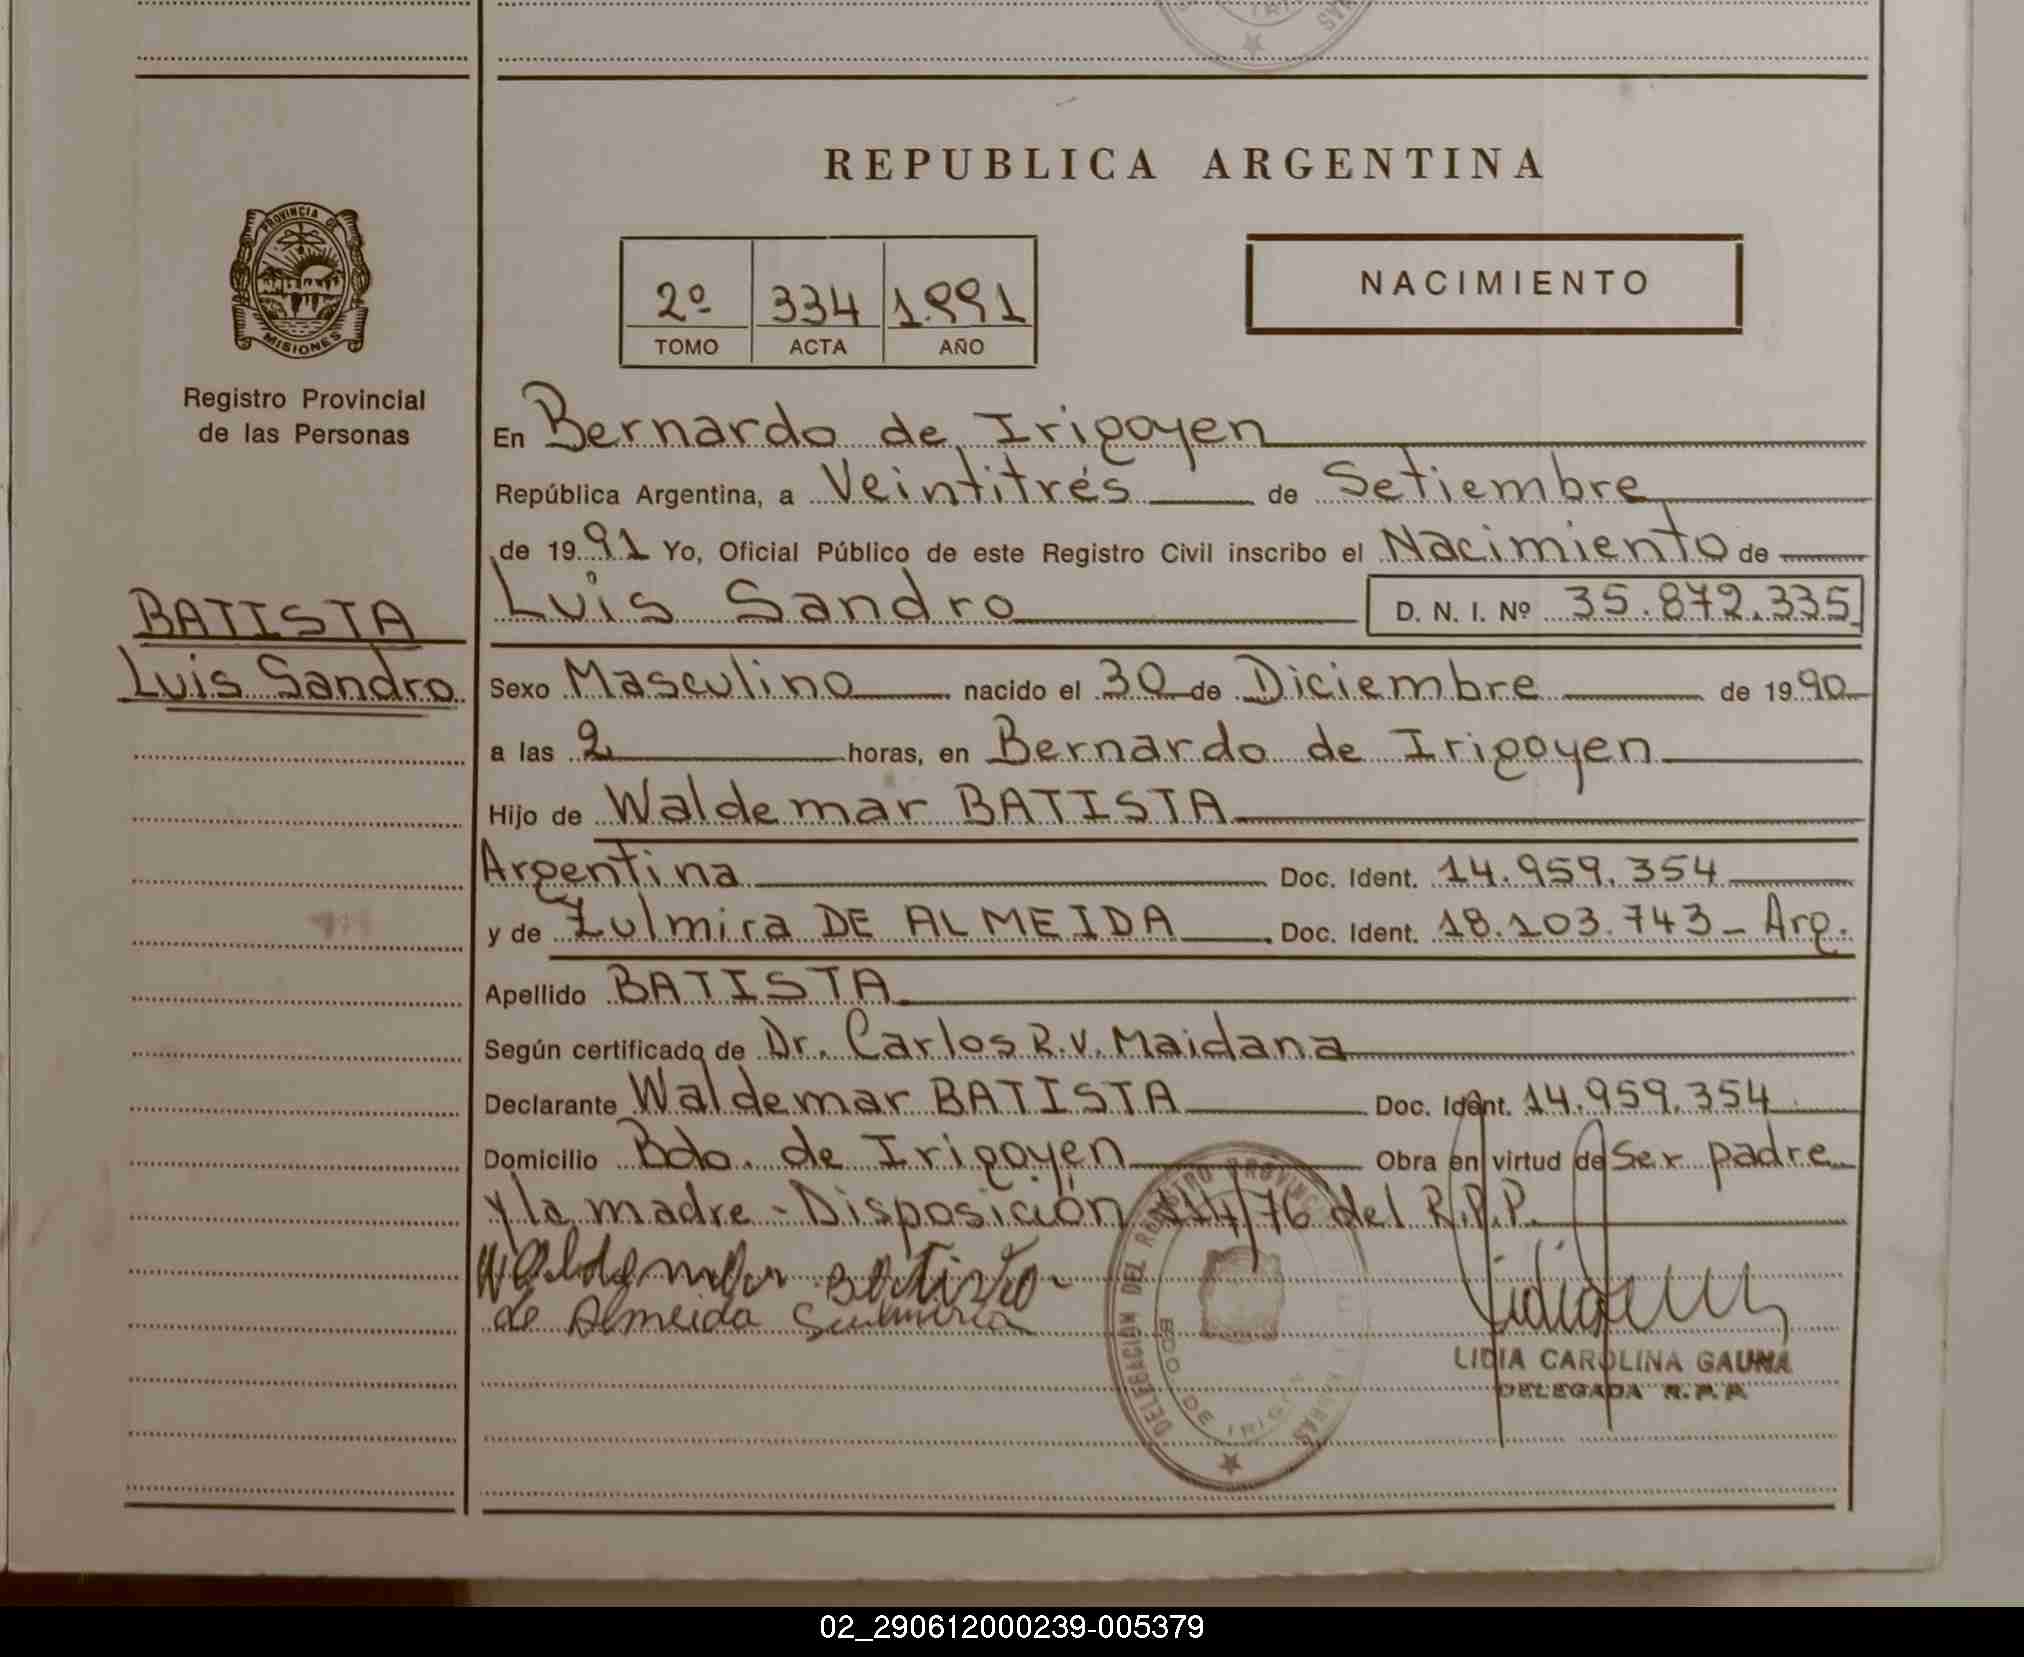 REPUBLICA ARGENTINA
PROVINCIA DE
MISIONES
Registro Provincial
de las Personas
2º 334 1.991
TOMO ACTA AÑO
NACIMIENTO
En Bernardo de Irigoyen
República Argentina, a Veintitrés de Setiembre
de 1991 Yo, Oficial Público de este Registro Civil inscribo el Nacimiento de
BATISTA
Luis Sandro
Luis Sandro D. N. I. Nº 35.872.335
Sexo Masculino nacido el 30 de Diciembre de 1990
a las 2 horas, en Bernardo de Irigoyen
Hijo de Waldemar BATISTA
Argentina Doc. Ident. 14.959.354
y de Zulmira DE ALMEIDA Doc. Ident. 18.103.743 - Arg.
Apellido BATISTA
Según certificado de Dr. Carlos R.V. Maidana
Declarante Waldemar BATISTA Doc. Ident. 14.959.354
Domicilio Bdo. de Irigoyen Obra en virtud de Ser padre
y la madre - Disposición 114/76 del R.P.P.
Waldemar Batista
de Almeida
DELEGACIÓN DEL REGISTRO PROVINCIAL
BDO DE
LIDIA CAROLINA GAUNA
DELEGADA R.P.P.
02_290612000239-005379